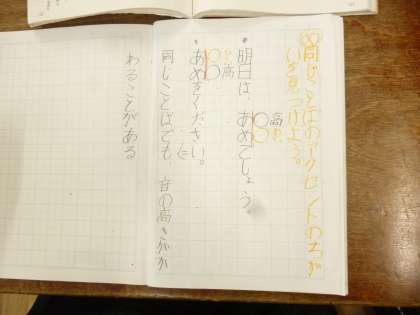 同じことばのアクセントのちが
いを見つけよう。
・明日は、あめでしょう。
高
・あめをください。
高
同じことばでも、音の高さがか
わることがある